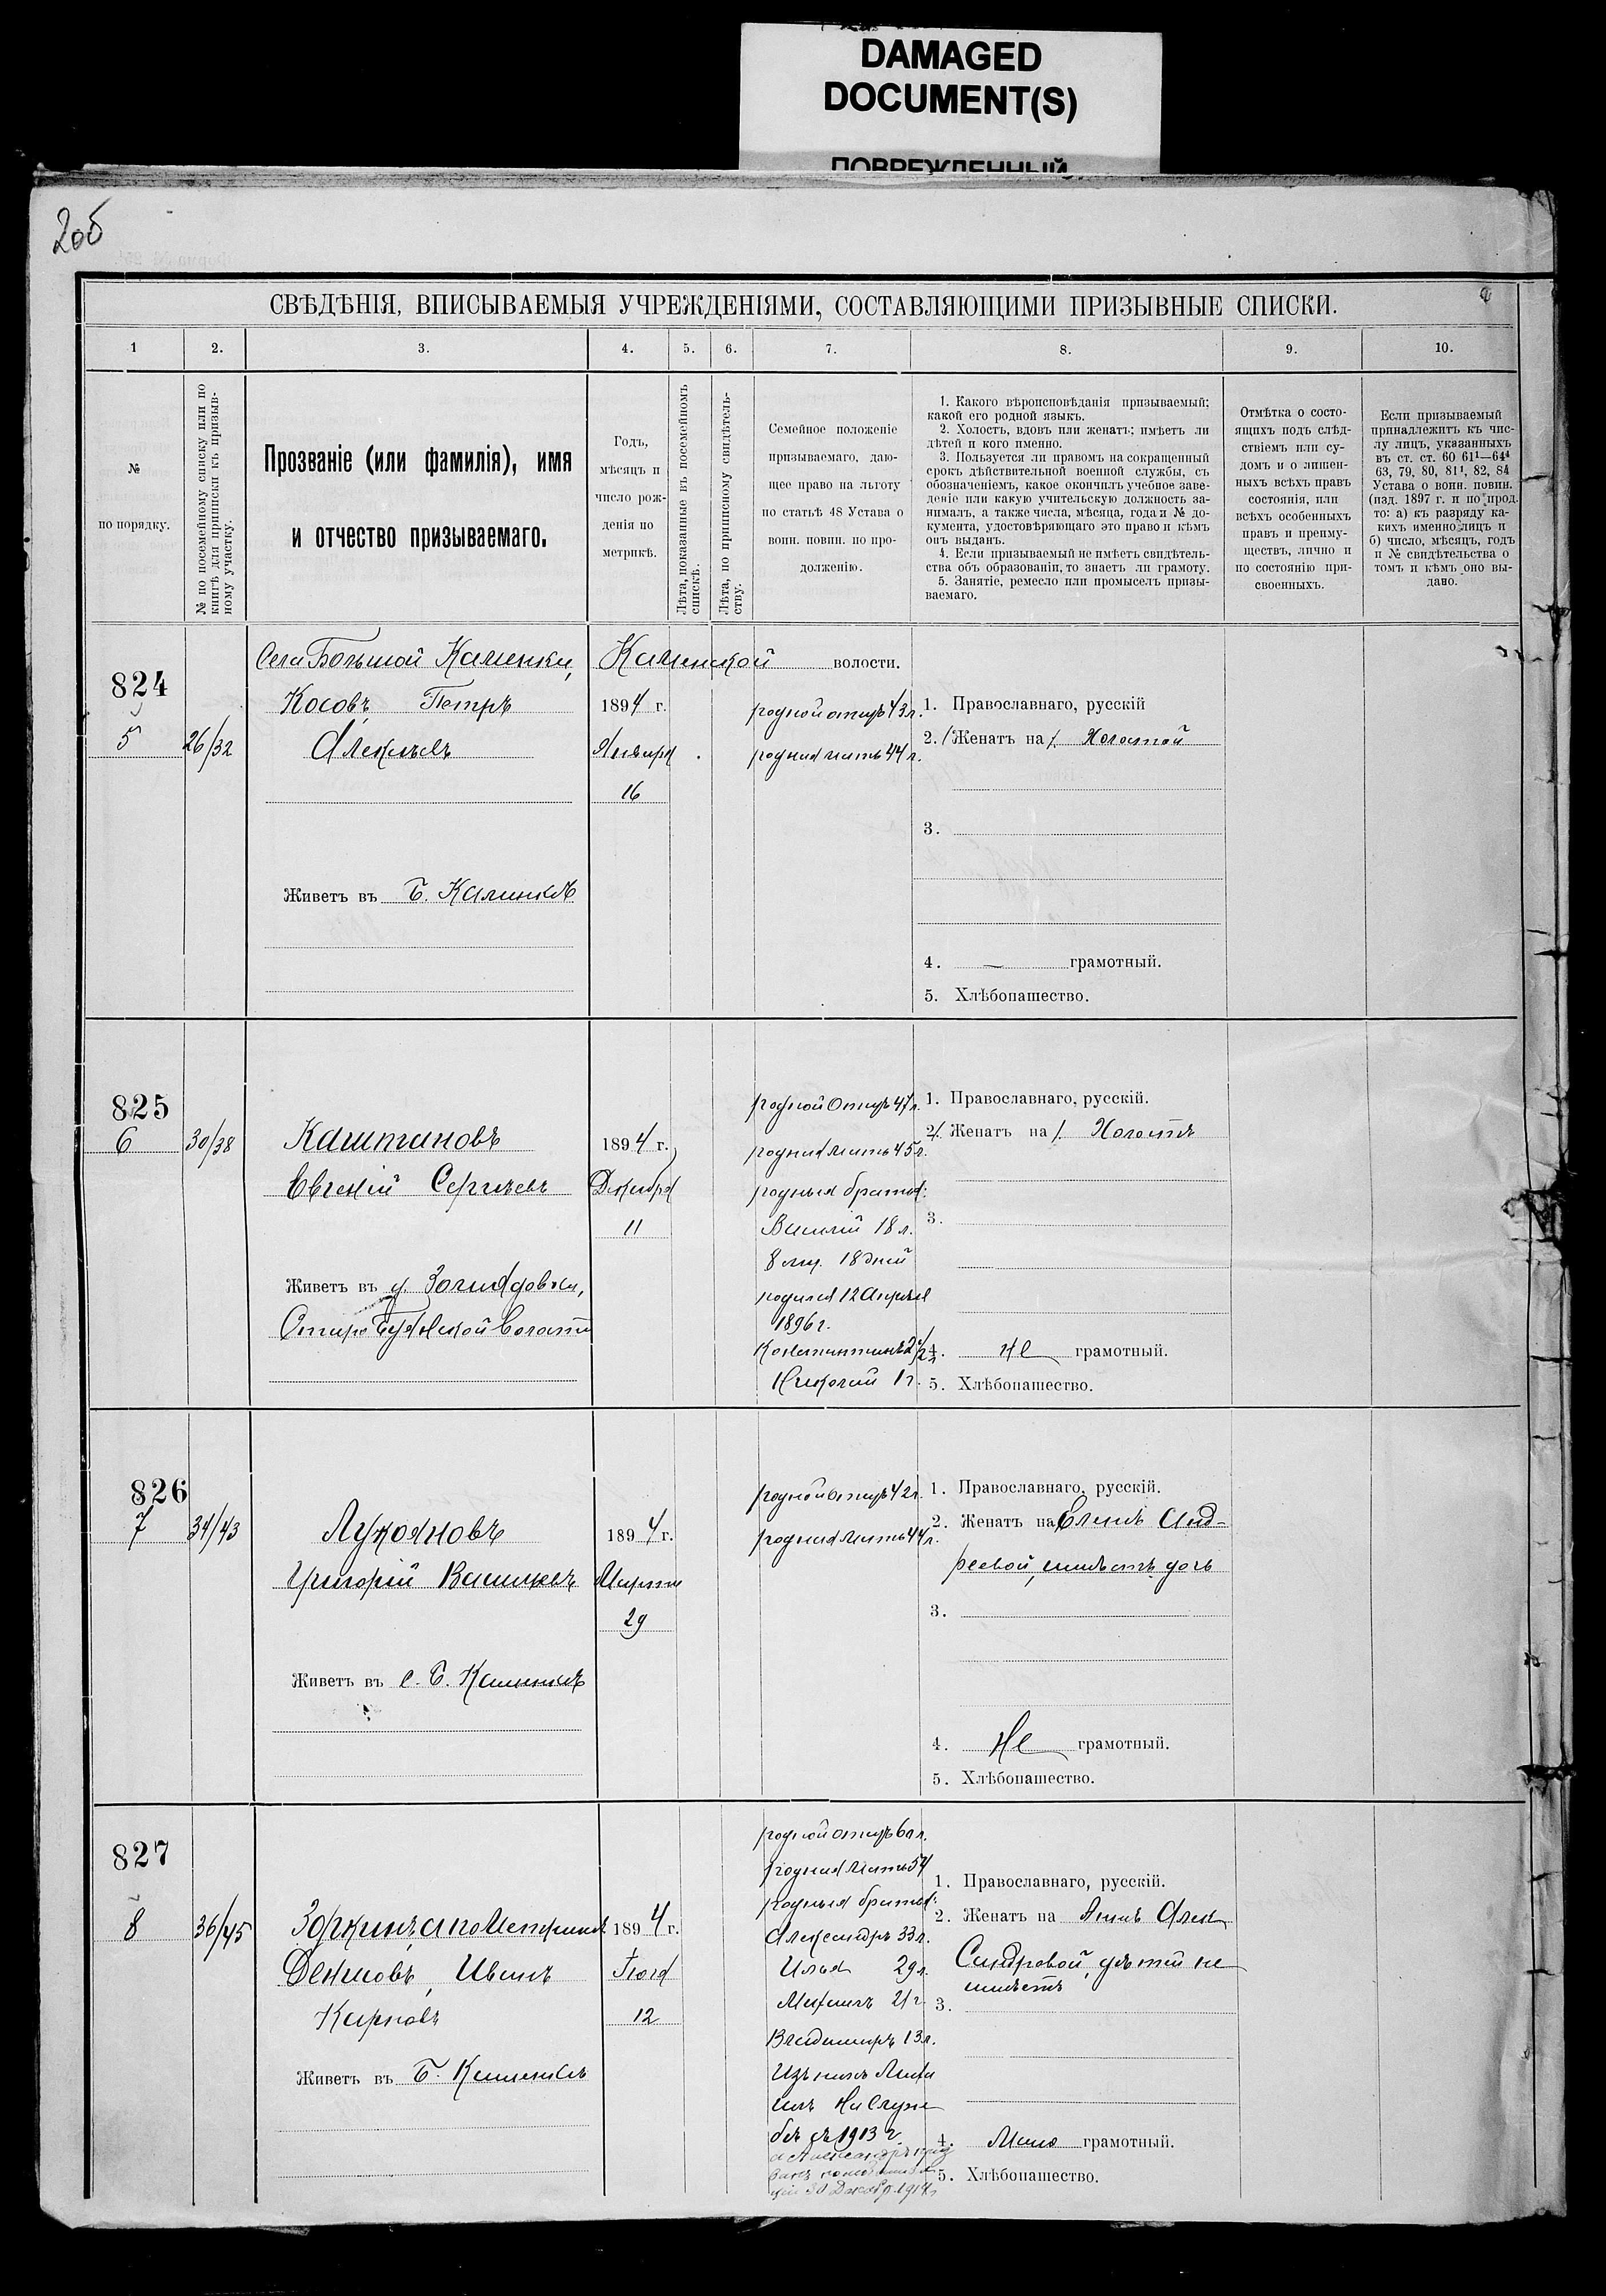 DAMAGED
DOCUMENT(S)
ПОВРЕЖДЕННЫЙ
2об
СВѢДѢНІЯ, ВПИСЫВАЕМЫЯ УЧРЕЖДЕНІЯМИ, СОСТАВЛЯЮЩИМИ ПРИЗЫВНЫЕ СПИСКИ.
1 2. 3. 4. 5. 6. 7. 8. 9. 10.
№
по порядку.
№ по посемейному списку или по
книгѣ для приписки къ призыв-
ному участку.
Прозваніе (или фамилія), имя
и отчество призываемаго.
Годъ,
мѣсяцъ и
число рож-
денія по
метрикѣ.
Лѣта, показанные въ посемейномъ
спискѣ.
Лѣта, по приписному свидѣтель-
ству.
Семейное положеніе
призываемаго, даю-
щее право на льготу
по статьѣ 48 Устава о
воин. повин. по про-
долженію.
1. Какого вѣроисповѣданія призываемый;
какой его родной языкъ.
2. Холостъ, вдовъ или женатъ; имѣетъ ли
дѣтей и кого именно.
3. Пользуется ли правомъ на сокращенный
срокъ дѣйствительной военной службы, съ
обозначеніемъ, какое окончилъ учебное заве-
деніе или какую учительскую должность за-
нималъ, а также числа, мѣсяца, года и № до-
кумента, удостовѣряющаго это право и кѣмъ
онъ выданъ.
4. Если призываемый не имѣетъ свидѣтель-
ства объ образованіи, то знаетъ ли грамоту.
5. Занятіе, ремесло или промыселъ призы-
ваемаго.
Отмѣтка о состо-
ящихъ подъ слѣд-
ствіемъ или су-
домъ и о лишен-
ныхъ всѣхъ правъ
состоянія, или
всѣхъ особенныхъ
правъ и преиму-
ществъ, лично и
по состоянію при-
своенныхъ.
Если призываемый
принадлежитъ къ чис-
лу лицъ, указанныхъ
въ ст. ст. 60 61¹—64⁴
63, 79, 80, 81¹, 82, 84
Устава о воин. повин.
(изд. 1897 г. и по прод.
то: а) къ разряду ка-
кихъ именно лицъ и
б) число, мѣсяцъ, годъ
и № свидѣтельства о
томъ и кѣмъ оно вы-
дано.
Села Большой Каменки, Каменской волости.
824
5 26/32
Косовъ Петръ
Алексѣевъ
Живетъ въ Б. Каменкѣ
1894 г.
Января
16
родной отецъ 43 л.
родная мать 44 л.
1. Православнаго, русскій
2. (Женатъ на). Холостой
3.
4. — грамотный.
5. Хлѣбопашество.
825
6 30/38
Каштановъ
Евгеній Сергѣевъ
Живетъ въ
волости
1894 г.
Декабря
11
родной отецъ 47 л.
родная мать 45 л.
родные братья:
Василій 18 л.
8 мц. 18 дней
родился 12 Апрѣля
1896 г.
Константинъ
Николай 1 г.
1. Православнаго, русскій.
2. Женатъ на). Холостъ
3.
4. не грамотный.
5. Хлѣбопашество.
826
7 34/43
Лукояновъ
Григорій Васильевъ
Живетъ въ с. Б. Каменкѣ
1894 г.
Марта
29
родной отецъ 42 л.
родная мать 44 л.
1. Православнаго, русскій.
2. Женатъ на Еленѣ Анд-
реевой, имѣетъ дочь
3.
4. Не грамотный.
5. Хлѣбопашество.
827
8 36/45
Зоркинъ, а по
Денисовъ, Иванъ
Карповъ
Живетъ въ Б. Каменкѣ
1894 г.
Іюля
12
родной отецъ 60 л.
родная мать 54
родные братья:
Александръ 33 л.
Илья 29 л.
Михаилъ 21 г.
Владимиръ 13 л.
Изъ нихъ Миха
илъ на служ
бѣ съ 1913 г.
а Александръ приз
ванъ по мобилиза
ціи 30 Декабр. 1914 г.
1. Православнаго, русскій.
2. Женатъ на Аннѣ Алек
сандровой, дѣтей не
имѣетъ
3.
4. Мало грамотный.
5. Хлѣбопашество.